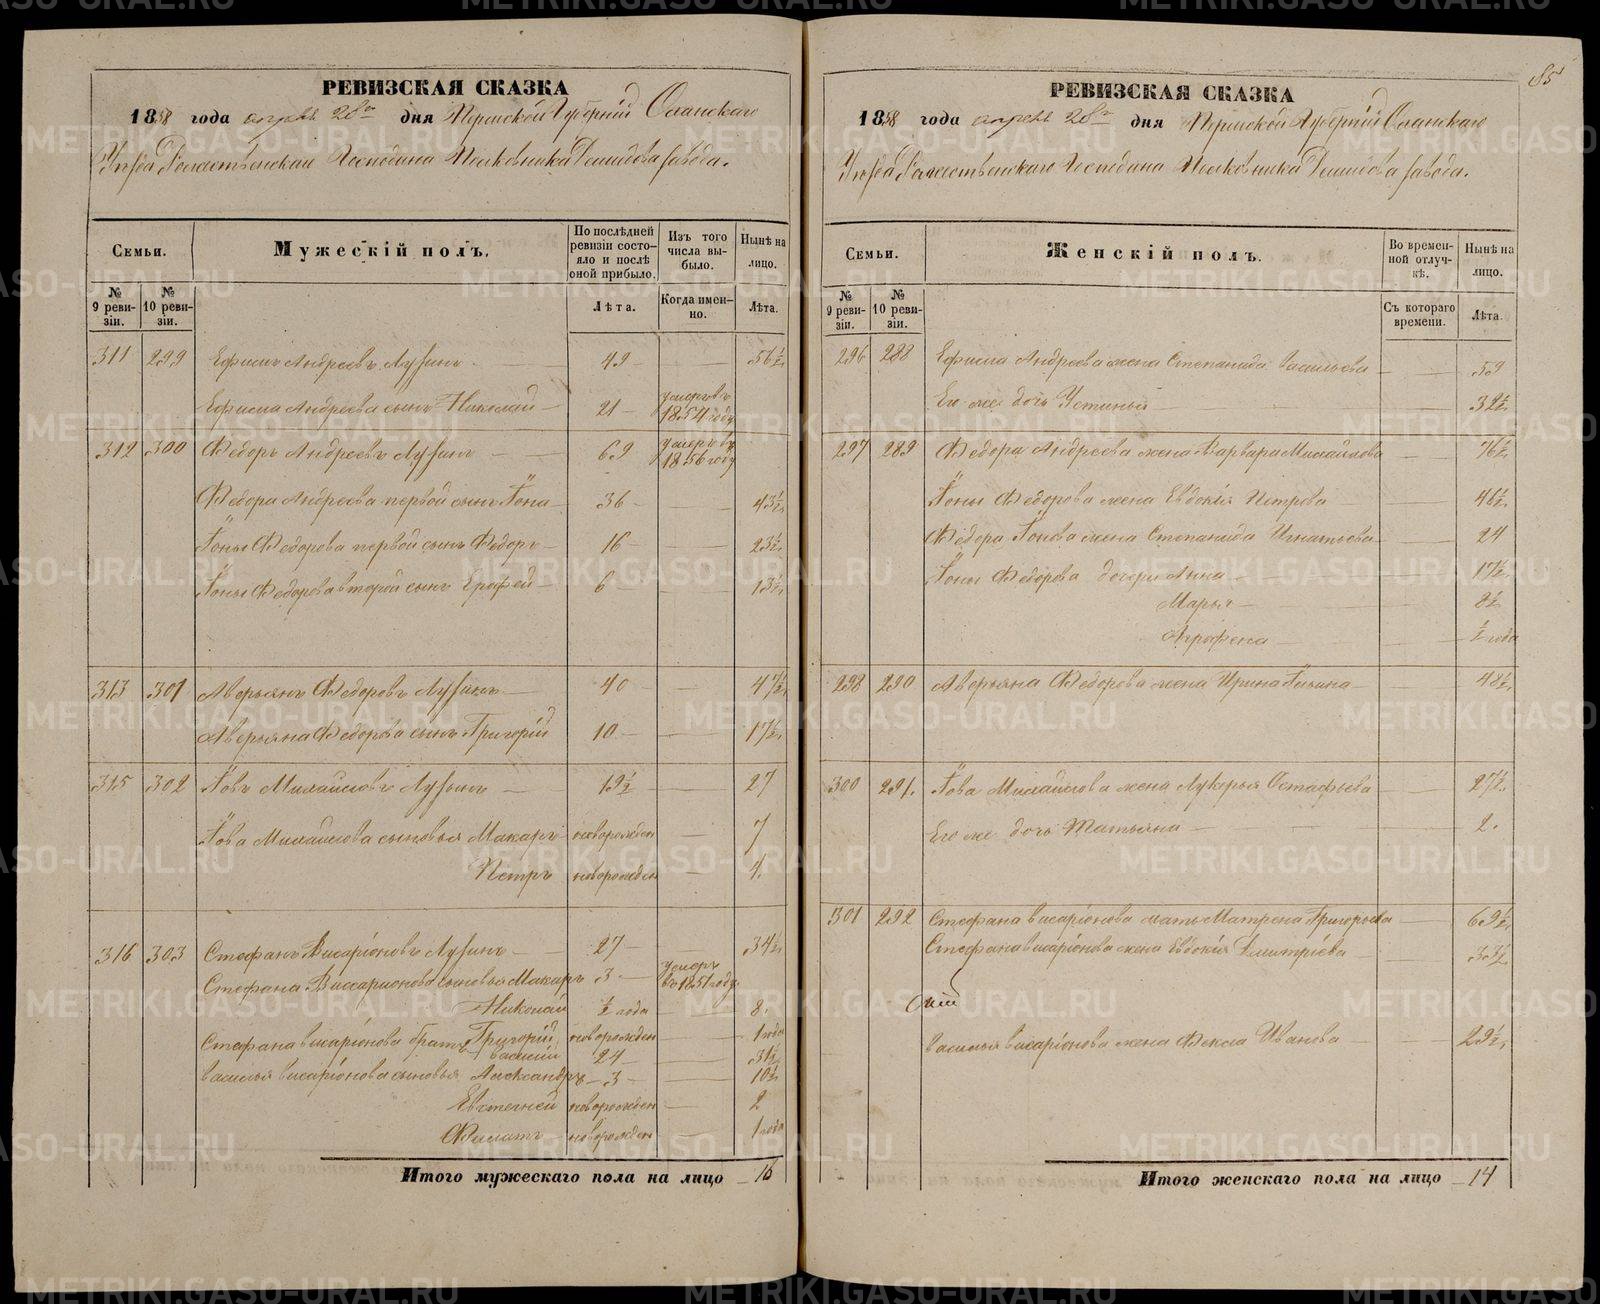 РЕВИЗСКАЯ СКАЗКА
1858 года апрель 28го дня Пермской Губерніи Оханскаго
Уезда Рожественскаго Господина Полковника Демидова завода.
Семьи.
Мужескій полъ.
По последней ревизіи состояло и после оной прибыло.
Изъ того числа выбыло.
Ныне на лицо.
№ 9 ревизіи.
№ 10 ревизіи.
Лета.
Когда именно.
Лета.
311 299 Ефимъ Андреевъ Лузинъ 49 56½
Ефима Андреева сынъ Николай 21 умеръ въ 1854 году
312 300 Федоръ Андреевъ Лузинъ 69 умеръ въ 1856 году
Федора Андреева первой сынъ Іона 36 43½
Іоны Федорова первой сынъ Федоръ 16 23½
Іоны Федорова второй сынъ Ерофей 6 13½
313 301 Аверьянъ Федоровъ Лузинъ 40 47½
Аверьяна Федорова сынъ Григорій 10 17½
315 302 Іовъ Михайловъ Лузинъ 19½ 27
Іова Михайлова сыновья Макаръ новорожден 7
Петръ новорожден 1.
316 303 Стефанъ Висаріоновъ Лузинъ 27 34½
Стефана Виссарионова сыновья Макаръ 3 умеръ въ 1851 году
Николай ½ года 8.
Григорій новорожден 1 года
Стефана висаріонова братъ Василій 24 31½
Василья висаріонова сыновья Александръ 3 10½
Евгений новорожден 2
Филатъ новорожден 1 года
Итого мужескаго пола на лицо 16
85
РЕВИЗСКАЯ СКАЗКА
1858 года апрель 28го дня Пермской Губерніи Оханскаго
Уезда Рожественскаго Господина Полковника Демидова завода.
Семьи.
Женскій полъ.
Во временной отлучке.
Ныне на лицо.
№ 9 ревизіи.
№ 10 ревизіи.
Съ котораго времени.
Лета.
296 288 Ефима Андреева жена Степанида Васильева 59
Его же дочь Устинья 32½
297 289 Федора Андреева жена Варвара Михайлова 76½
Іоны Федорова жена Евдокія Петрова 46½
Федора Іонова жена Степанида Игнатьева 24
Іоны Федорова дочери Анна 17½
Марья 8½
Агрофена ½ года
298 290 Аверьяна Федорова жена Ирина 48½
300 291. Іова Михайлова жена Лукерья Остафьева 27½
Его же дочь Татьяна 2.
301 292 Стефана висаріонова мать Матрена Григорьева 69½
Стефана висаріонова жена Евдокія Дмитріева 33½
Василья висаріонова жена Фекла Иванова 29½
Итого женскаго пола на лицо 14
METRIKI.GASO-URAL.RU